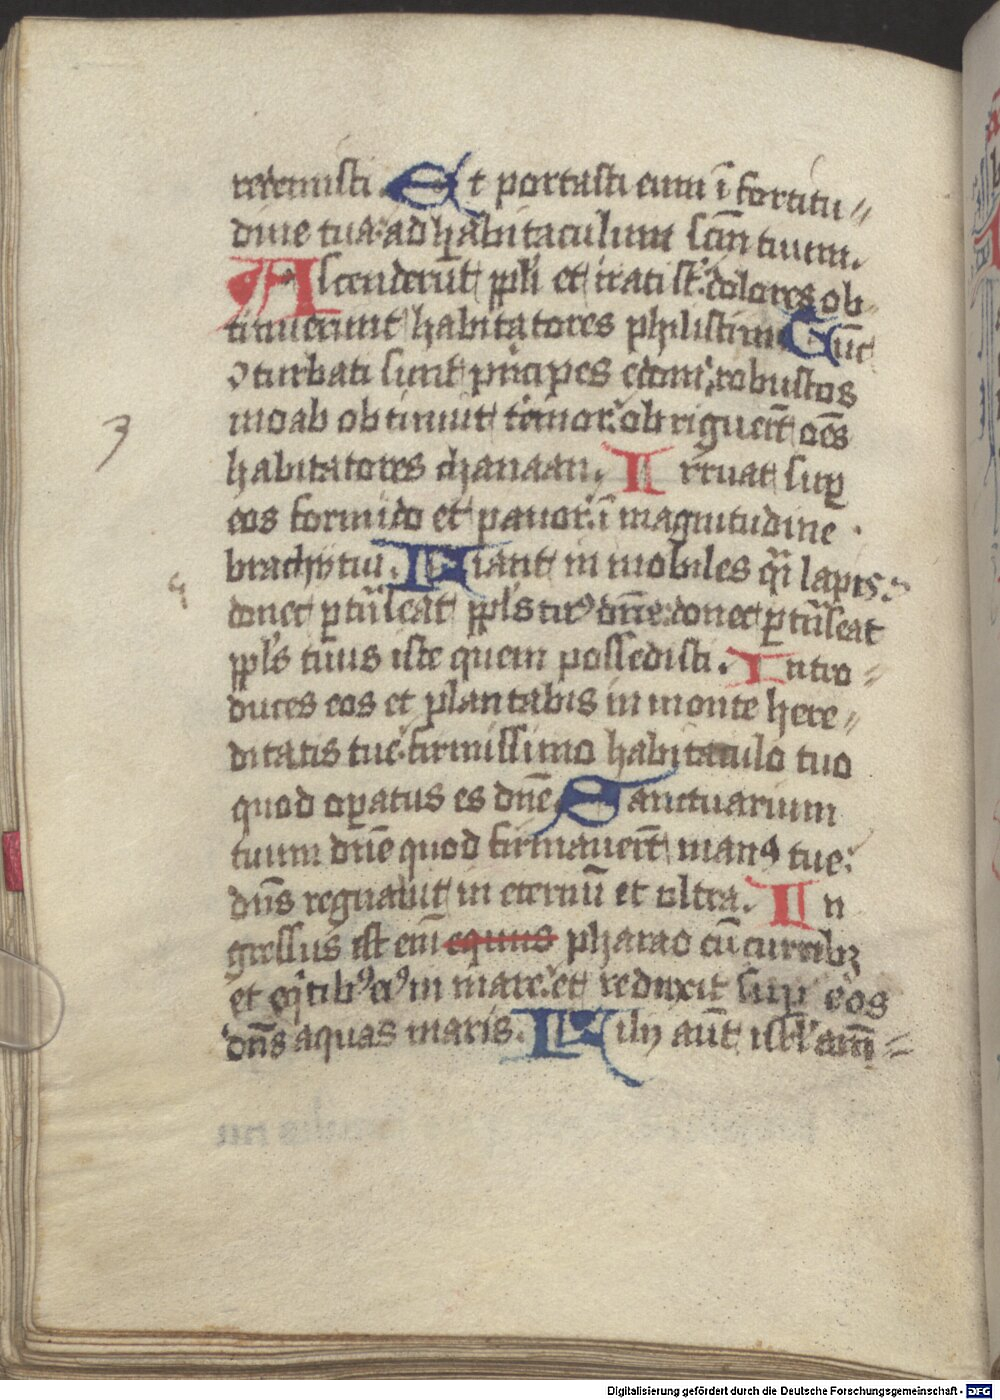 redemisti Et portasti eum ī fortitu⸗
dine tua· ad habitaculum scm̄ tuum.
Ascenderūt ppl̄i et irati st̄· dolores ob⸗
tinuerunt habitatores philistim Tūc
ɔturbati sunt pͥncipes edom· robustos
moab obtinuit tremor· obriguer̄t oēs
3
habitatores chanaan. Irruat sup̱
eos formido et pauor· ī magnitudine
brachij tui. Fiant in mobiles qͣsi lapis
4
donec p̱tn̄seat ppl̄s tuꝰ dn̄e· donec p̱tn̄seat
ppl̄s tuus iste quem possedisti. Intro⸗
duces eos et plantabis in monte here⸗
ditatis tue· firmissimo habitaculo tuo
quod op̱atus es dn̄e Sanctuarium
tuum dn̄e quod firmauer̄t manꝰ tue·
dn̄s regnabit in eternū et ultra. In
gressus est em̄ equus pharao cū curribꝫ
et eqͥtibꝰ eiꝰ in mare· et reduxit sup̱ eos
dn̄s aquas maris. Filij aūt isrl̄ am̄⸗
Digitalisierung gefördert durch die Deutsche Forschungsgemeinschaft - DFG